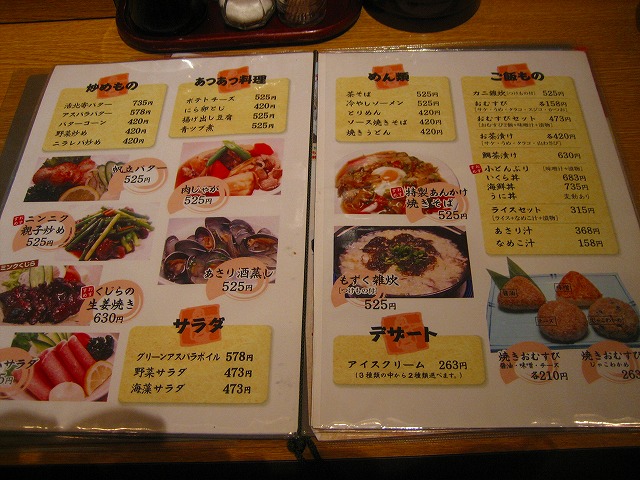 炒めもの
活北寄バター 735円
アスパラバター 578円
バターコーン 420円
野菜炒め 420円
ニラレバ炒め 420円
帆立バター
525円
ニンニク
親子炒め
525円
ミンククジラ
くじらの
生姜焼き
630円
サラダ
あつあつ料理
ポテトチーズ 525円
にら卵とじ 420円
揚げ出し豆腐 525円
青ツブ煮 525円
肉じゃが
525円
あさり酒蒸し
525円
サラダ
グリーンアスパラボイル 578円
野菜サラダ 473円
海藻サラダ 473円
めん類
茶そば 525円
冷やしソーメン 525円
とりめん 420円
ソース焼きそば 420円
焼きうどん 420円
特製あんかけ
焼きそば
525円
もずく雑炊
(つけもの付)
525円
デザート
アイスクリーム 263円
(3種類の中から2種類選べます。)
ご飯もの
カニ雑炊(つけもの付) 525円
おむすび 各158円
おむすびセット 473円
(おむすび2個+味噌汁+漬物)
お茶漬け 各420円
鯛茶漬け 630円
小どんぶり (味噌汁+漬物)
いくら丼 683円
海鮮丼 735円
うに丼 変動あり
ライスセット 315円
(ライス+なめこ汁+漬物)
あさり汁 368円
なめこ汁 158円
焼きおむすび
醤油・味噌・チーズ
各210円
焼きおむすび
じゃこわかめ
263